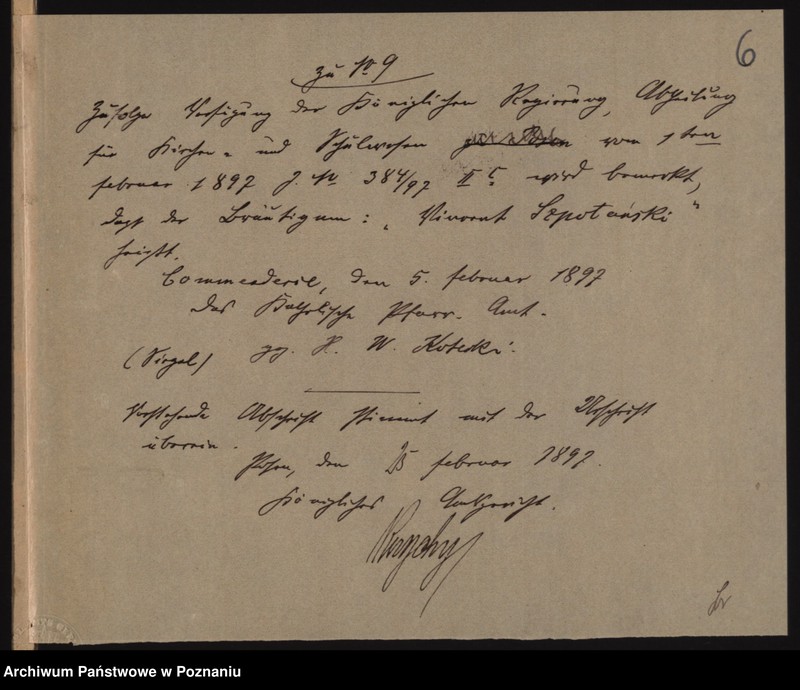 6
Zu No 9
Zufolge Verfügung der Königlichen Regierung, Abtheilung
für Kirchen- und Schulwesen vom 1ten
Februar 1897 J. No 384/97 II C. wird bemerkt,
daß der Bräutigam: „Vincent Szpotański"
heißt.
Commenderie, den 5. Februar 1897
Das Katholische Pfarr-Amt.
(Siegel) gz. X. W. Kotecki.
Vorstehende Abschrift stimmt mit der Urschrift
überein.
Posen, den 15 Februar 1897.
Königliches Amtsgericht.
Archiwum Państwowe w Poznaniu